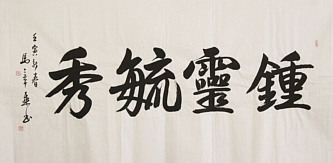 鍾靈毓秀
壬寅新春